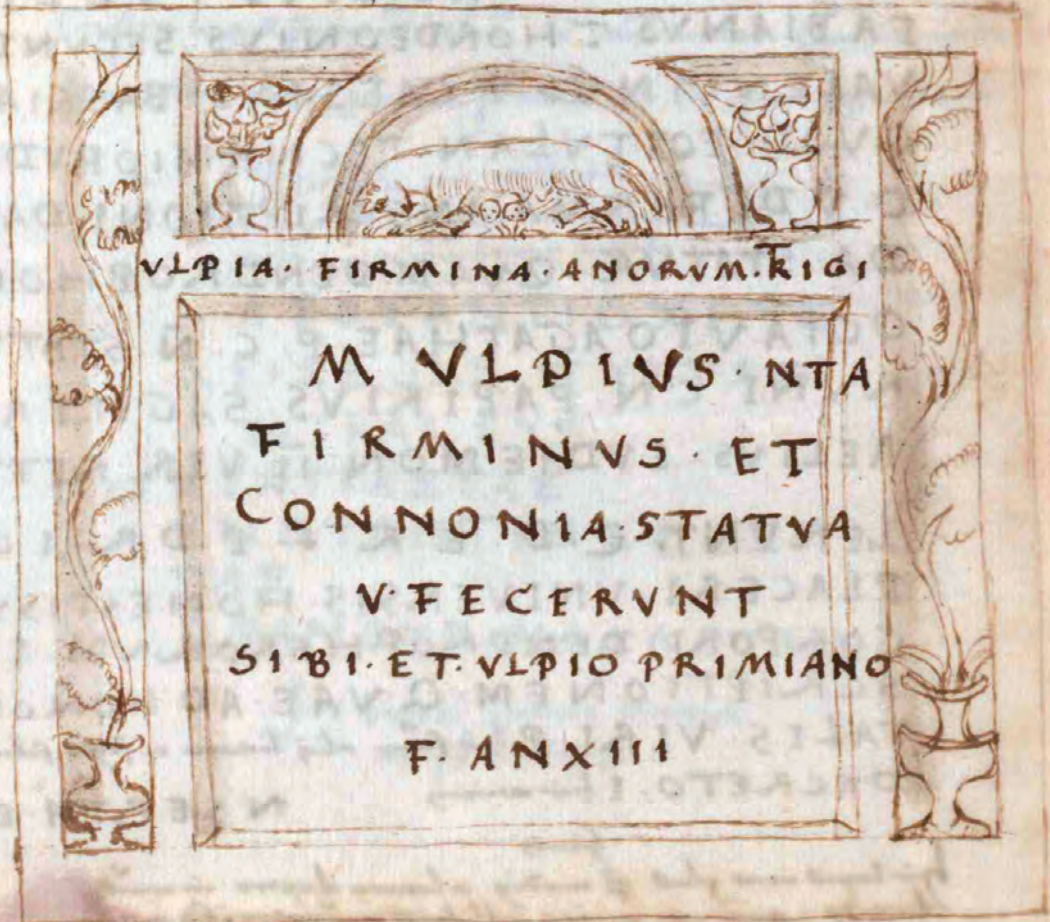 VLPIA · FIRMINA · ANORVM · TRIGI
M VLPIVS · NTA
FIRMINVS · ET
CONNONIA · STATVA
V · FECERVNT
SIBI · ET · VLPIO PRIMIANO
F · ANXIII